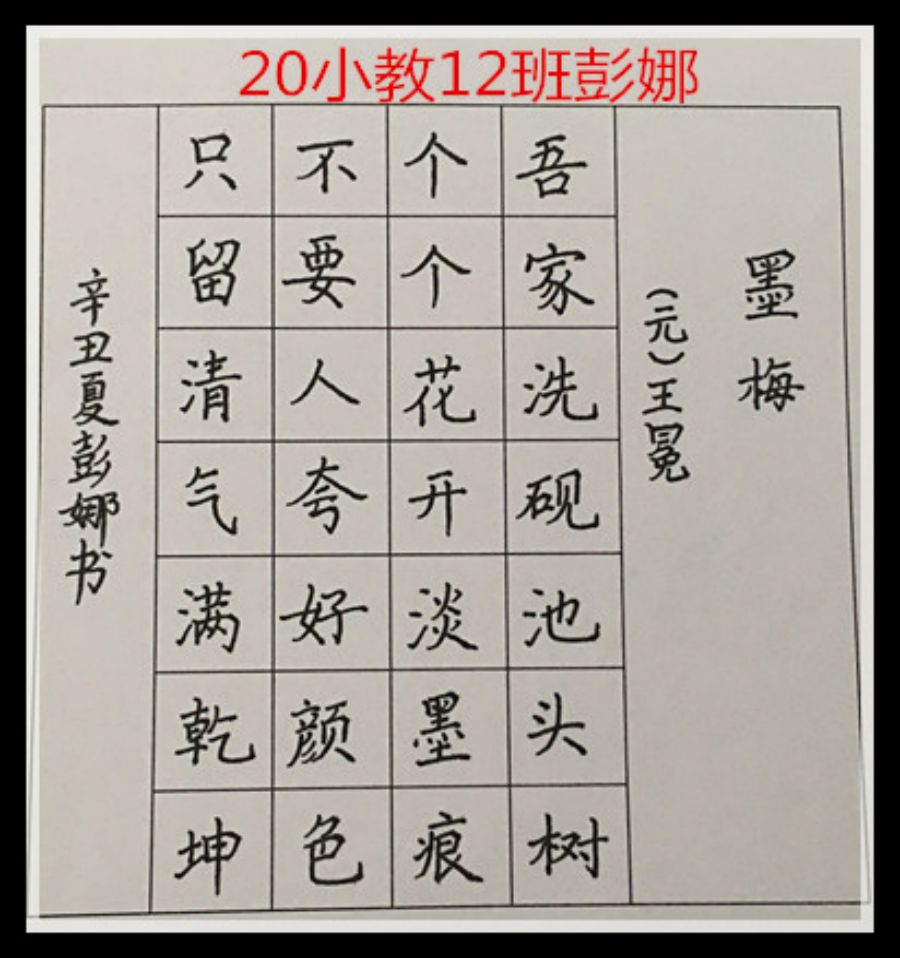 20小教12班彭娜
墨梅
(元)王冕
吾家洗砚池头树
个个花开淡墨痕
不要人夸好颜色
只留清气满乾坤
辛丑夏彭娜书